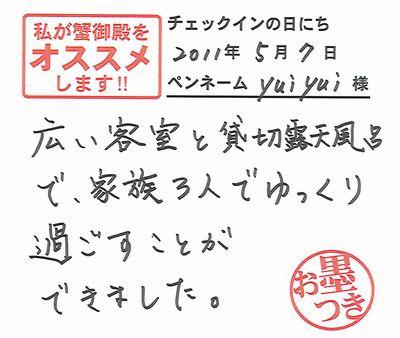 私が蟹御殿を
オススメ
します!!
チェックインの日にち
2011年5月7日
ペンネーム yuiyui 様
広い客室と貸切露天風呂
で、家族3人でゆっくり
過ごすことが
できました。
お墨つき